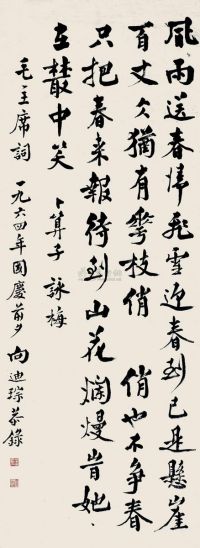 風雨送春歸飛雪迎春到已是懸崖
百丈仌猶有華枝俏 俏也不爭春
只把春來報待到山花爛熳旹她
在叢中笑
卜算子 詠梅
毛主席詞 一九六四年國慶前夕 向迪琮恭錄